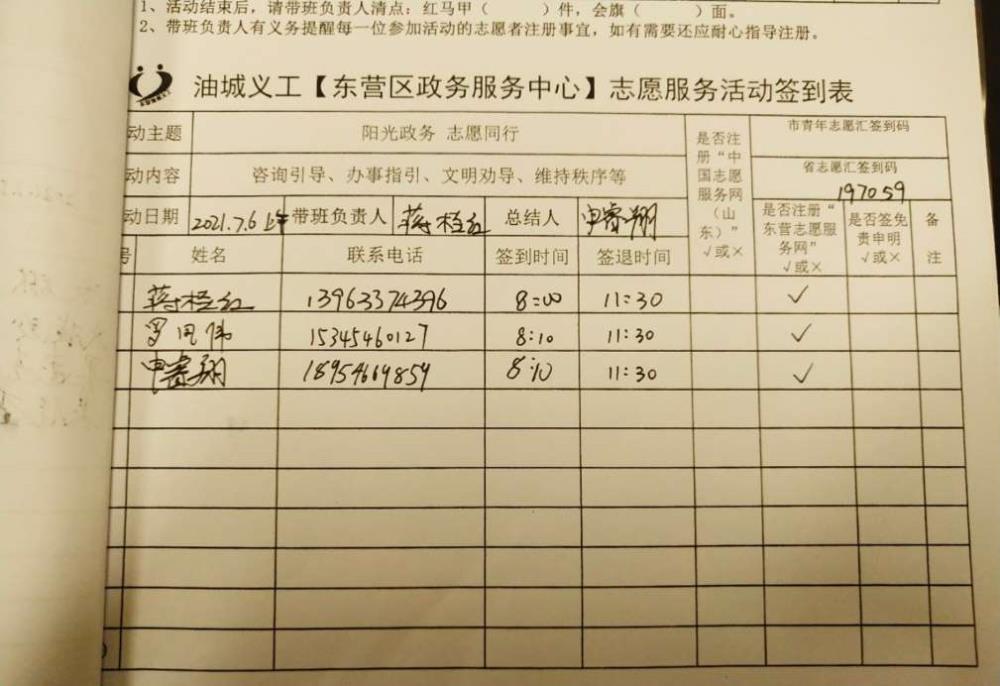 1、活动结束后，请带班负责人清点：红马甲（　　）件，会旗（　　）面。
2、带班负责人有义务提醒每一位参加活动的志愿者注册事宜，如有需要还应耐心指导注册。
油城义工【东营区政务服务中心】志愿服务活动签到表
动主题 阳光政务 志愿同行 是否注册“中国志愿服务网（山东）”√或× 市青年志愿汇签到码
动内容 咨询引导、办事指引、文明劝导、维持秩序等 省志愿汇签到码 197059
动日期 2021.7.6 上午 带班负责人 蒋桎红 总结人 申睿翔 是否注册“东营志愿服务网”√或× 是否签免责申明√或× 备注
号 姓名 联系电话 签到时间 签退时间
蒋桎红 13963374396 8:00 11:30 ✓
罗同伟 15345460127 8:10 11:30 ✓
申睿翔 18954669859 8:10 11:30 ✓